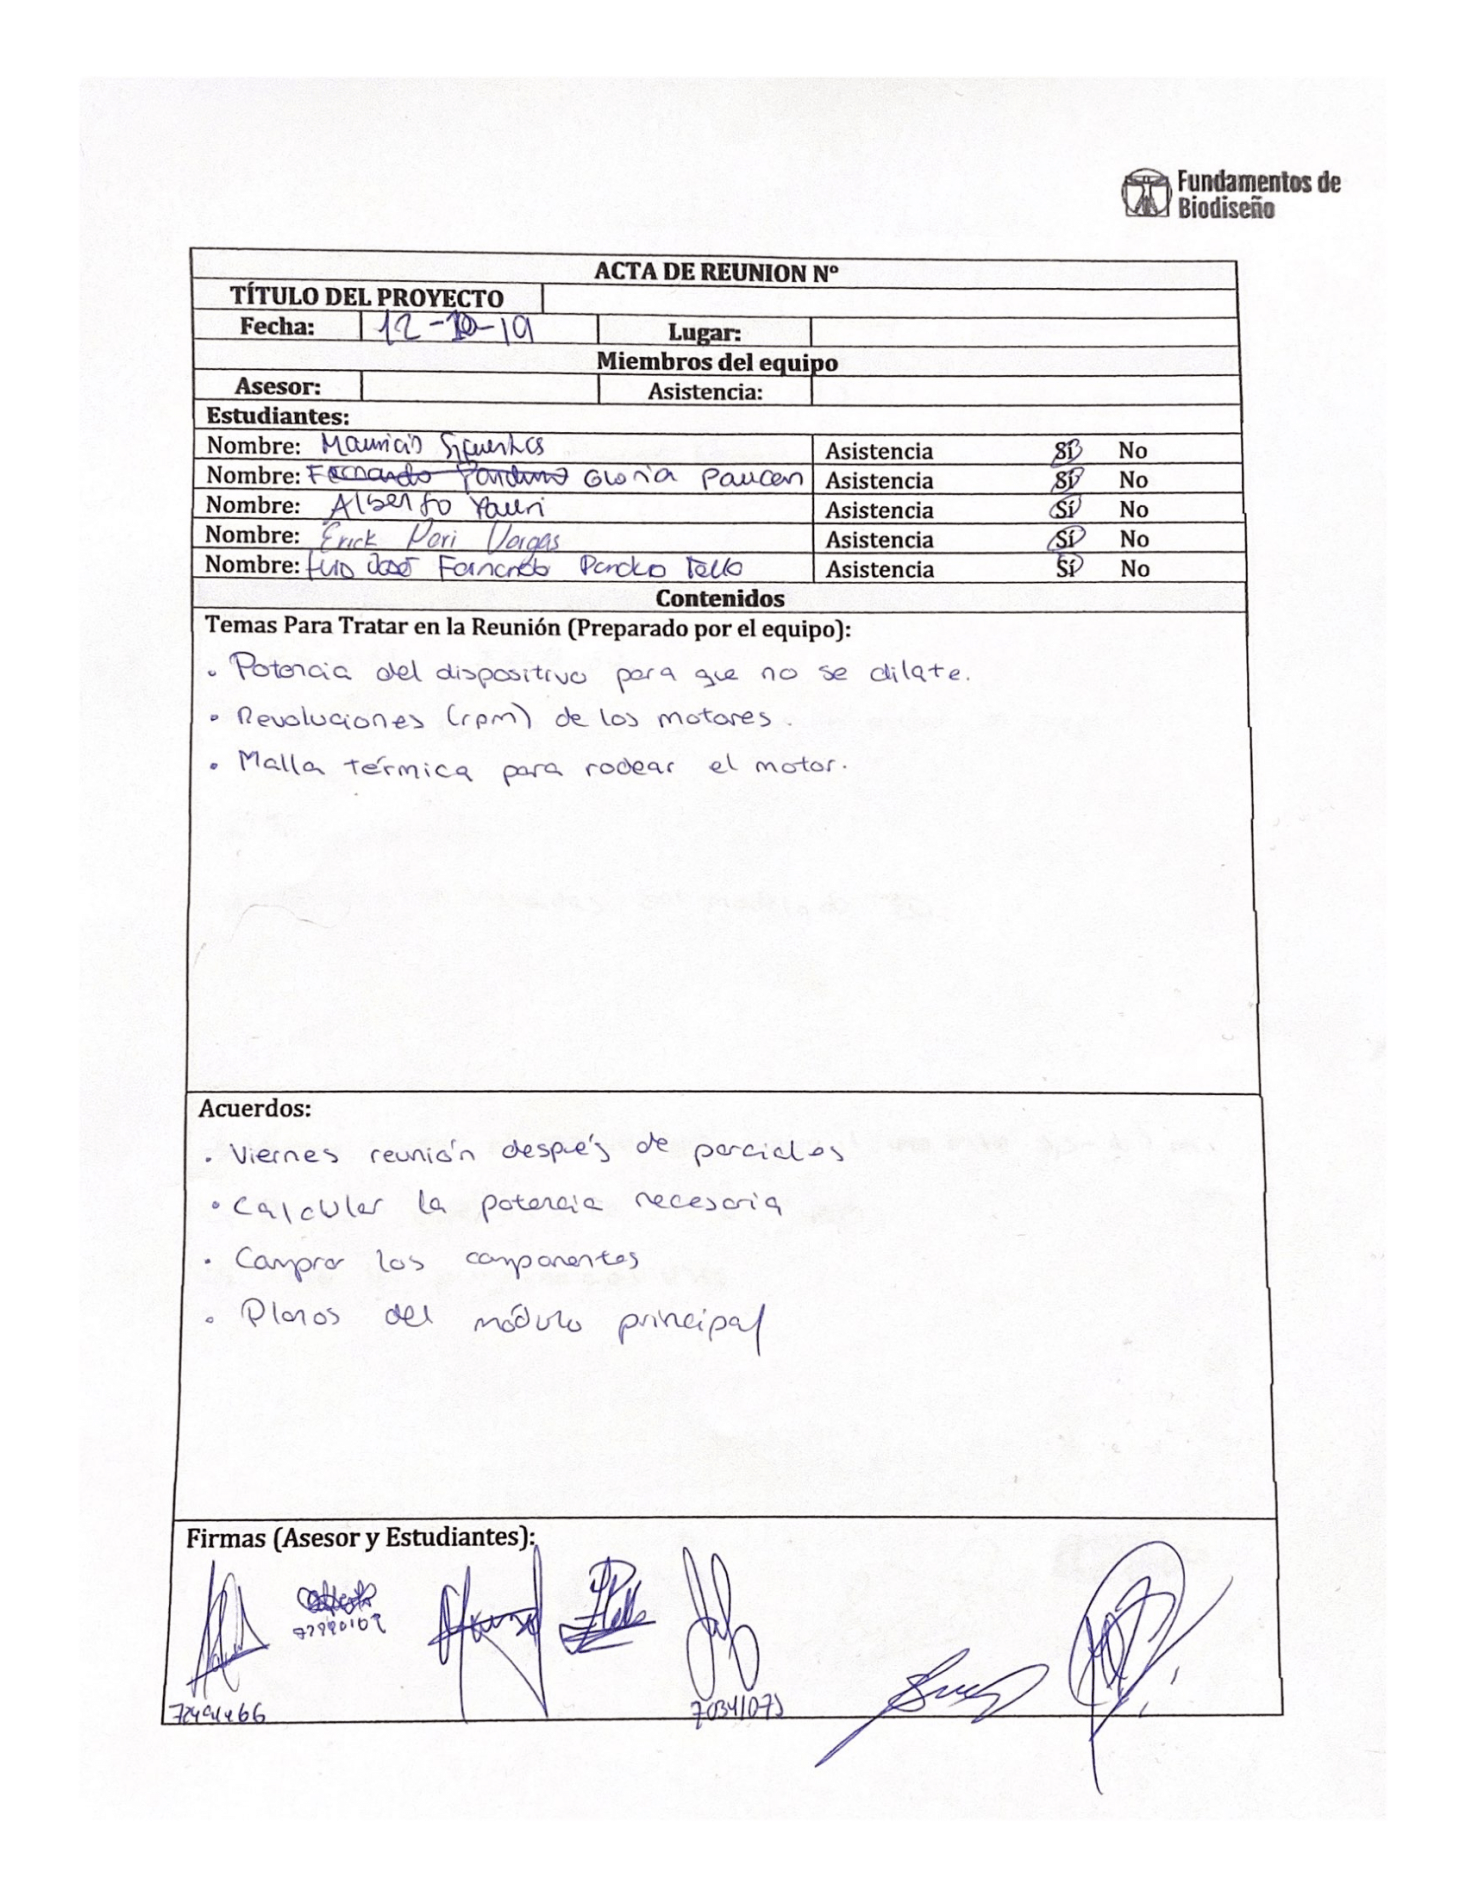 Fundamentos de
Biodiseño
ACTA DE REUNION Nº
TÍTULO DEL PROYECTO
Fecha: 12-10-19 Lugar:
Miembros del equipo
Asesor: Asistencia:
Estudiantes:
Nombre: Mauricio Sifuentes Asistencia Sí No
Nombre: Fernando Gloria Paucar Asistencia Sí No
Nombre: Alberto Yauri Asistencia Sí No
Nombre: Erick Pari Vargas Asistencia Sí No
Nombre: Luis José Fernando Pardo Tello Asistencia Sí No
Contenidos
Temas Para Tratar en la Reunión (Preparado por el equipo):
• Potencia del dispositivo para que no se dilate.
• Revoluciones (rpm) de los motores.
• Malla térmica para rodear el motor.
Acuerdos:
• Viernes reunión después de parciales
• Calcular la potencia necesaria
• Comprar los componentes
• Planos del módulo principal
Firmas (Asesor y Estudiantes):